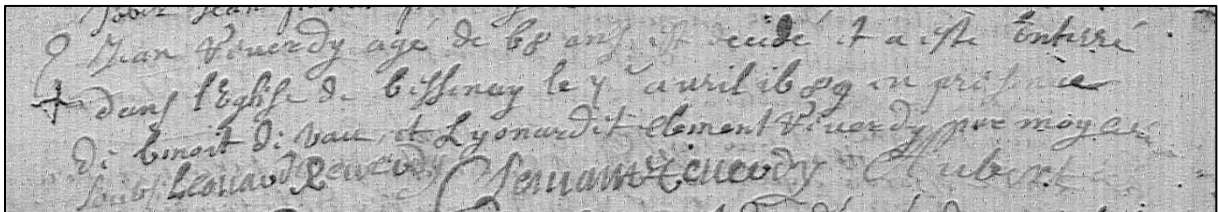 Jean Reverdy agé de 68 ans est decédé et a esté Enterré
dans l'Eglise de bessenay le avril 1689 en presence
de benoit de vau et Lyonard et clement Reverdy par moy
soubs Leonard Reverdy Clemant Reverdy Aubert